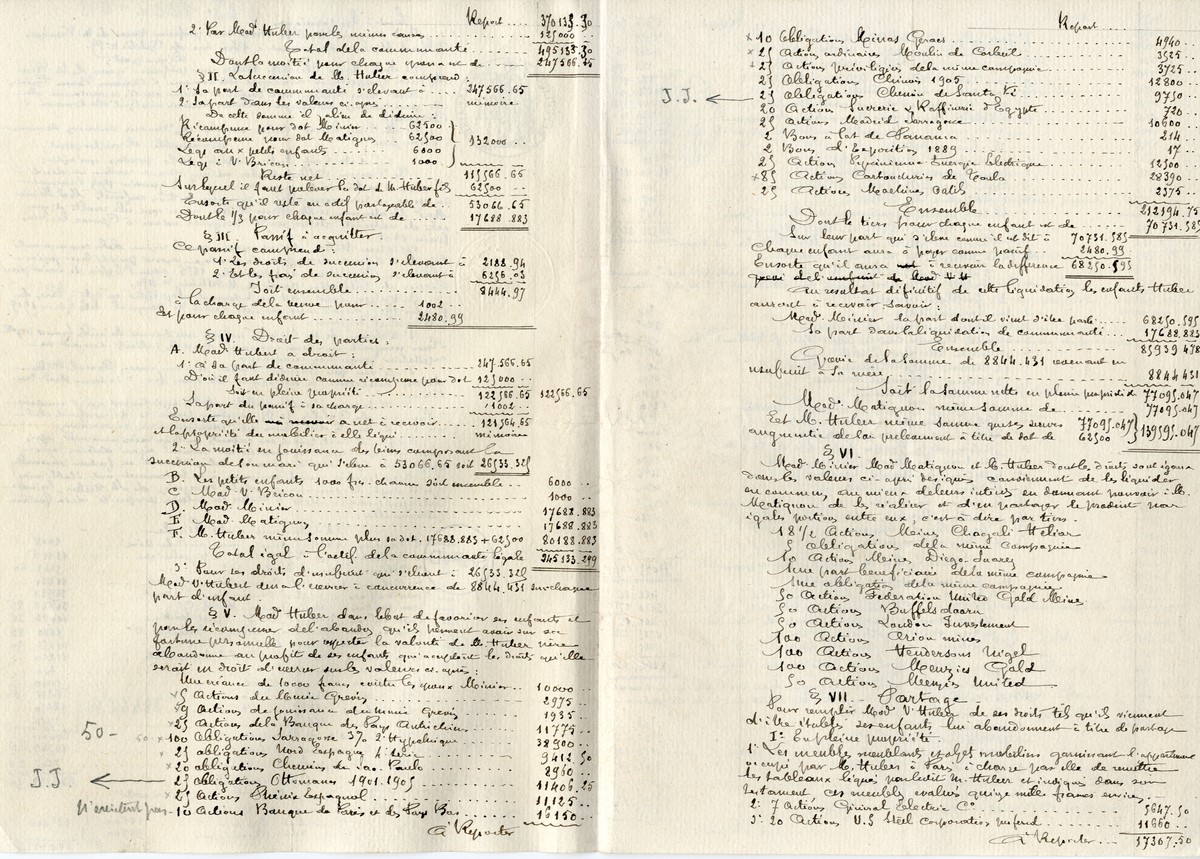 Report .... 370133.30
2° Par Mad. Huber pour les mêmes causes ......... 125000 ..
Total de la communauté ............ 495133.30
Dont la moitié pour chaque époux est de ......... 247566.65
§ II. La succession de M. Huber comprend :
1° Sa part de communauté s'élevant à ... 247566.65
2° Sa part dans les valeurs ci-après ....... mémoire
De cette somme il y a lieu de déduire :
Récompense pour dot Minier .... 62500
Récompense pour dot Matignon 62500 } 132000 ..
Legs aux petits enfants ........ 6000
Legs à V. Bricon ............ 1000
Reste net ............ 115566.65
Sur lequel il faut prélever la dot de M. Huber fils 62500 ..
En sorte qu'il reste en actif partageable de .... 53066.65
Dont le 1/3 pour chaque enfant est de ........ 17688.883
§ III. Passif à acquitter
Ce passif comprend :
1° Les droits de succession s'élevant à 2188.94
2° Et les frais de succession s'élevant à 6256.03
Soit ensemble ............ 8444.97
à la charge de la veuve pour ..... 1002 ..
Et pour chaque enfant ....... 2480.99
§ IV. Droit des parties :
A. Mad. Hubert a droit :
1° à sa part de communauté ........ 247.566.65
D'où il faut déduire comme récompense pour dot 125000 ..
Soit en pleine propriété ........ 122566.65 122566.65
Sa part du passif à sa charge ....... 1002 ..
En sorte qu'elle a net à recevoir ...... 121564.65
et la propriété du mobilier à elle légué ..... mémoire
2° La moitié en jouissance des biens composant la
succession de son mari qui s'élève à 53066.65 soit 26533.325
B. Les petits enfants 1000 frs chacun soit ensemble .. 6000 ..
C. Mad. V. Bricon ........ 1000 ..
D. Mad. Minier ........ 17688.883
E. Mad. Matignon ........ 17688.883
F. M. Huber même somme plus sa dot. 17688.883 + 62500 80188.883
Total égal à l'actif de la communauté légale 245133.299
3° Pour ses droits d'usufruit qui s'élèvent à 26533.325
Mad. V. Hubert devra l'exercer à concurrence de 8844.431 sur chaque
part d'enfant.
§ V. Mad. Huber dans le but de favoriser ses enfants et
pour les récompenser de l'abandon qu'ils peuvent avoir sur sa
fortune personnelle pour respecter la volonté de M. Huber père
abandonne au profit de ses enfants qui acceptent les droits qu'elle
serait en droit d'exercer sur les valeurs ci-après.
Une créance de 10000 francs contre les époux Minier .. 10000 ..
x 5 Actions du Musée Grévin ........ 2975 ..
59 Actions de jouissance du musée Grévin ........ 1935 ..
x 25 Actions de la Banque des Pays Autrichiens ...... 11775 ..
50 - x 100 Obligations Sarragosse 3% 2e Hypothèque ....... 38900 ..
x 25 obligations Nord Espagne 1e série ........ 9412.50
x 20 obligations Chemins de Sao Paulo ........ 8960 ..
J.J. ← 25 obligations Ottomanes 1901.1905 ........ 11406.25
x 25 Actions Phénix Espagnol ........ 11125 ..
n'existent pas - 10 Actions Banque de Paris et des Pays Bas ........ 16150 ..
à Reporter
Report ........
x 10 Obligations Minas Geraes ........ 4940 ..
x 25 Action ordinaires Moulin de Corbeil ........ 3525 ..
x 25 Actions privilégiées de la même compagnie ........ 3725 ..
25 Obligations Chinois 1905 ........ 12800 ..
J.J. ← 25 Obligations Chemin de Santa Fé ........ 9750 ..
20 Action Sucrerie & Raffinerie d'Egypte ........ 720 ..
25 Actions Madrid Sarragosse ........ 10600 ..
2 Bons à lot de Panama ........ 214 ..
2 Bons d'Exposition 1889 ........ 17 ..
25 Action Energie Electrique ........ 12500 ..
x 85 Actions Carbonduries de Toula ........ 28390 ..
25 Actions ........ 2375 ..
Ensemble ........ 212194.75
Dont le tiers pour chaque enfant est de ........ 70731.585
Sur leur part qui s'élève comme il est dit à 70731.585
Chaque enfant aura à payer comme passif .. 2480.99
En sorte qu'il aura à recevoir la différence 68250.595
Au résultat définitif de cette liquidation les enfants Huber
auront à recevoir savoir :
Mad. Minier la part dont il vient d'être parlé ..... 68250.595
Sa part dans la liquidation de communauté ..... 17688.883
Ensemble ........ 85939.478
Grevée de la somme de 8844.431 revenant en
usufruit à Sa mère ........ 8844.431
Soit la somme nette en pleine propriété de 77095.047
Mad. Matignon même somme de ........ 77095.047
Et M. Huber même somme que ses sœurs 77095.047 } 139595.047
augmentée de son prélèvement à titre de dot de 62500
§ VI.
Mad. Minier Mad. Matignon et M. Huber dont les droits sont égaux
dans les valeurs ci-après désignées conviennent de les liquider
en commun, au mieux de leurs intérêts en donnant pouvoir à M.
Matignon de les réaliser et d'en partager le produit par
égales portions entre eux, c'est à dire par tiers.
18 1/2 Actions Mines Chagali Héliar
5 Obligations de la même Compagnie
10 Actions Mines Diégo Suarez
Une part bénéficiaire de la même compagnie
Une obligation de la même compagnie
50 Actions Federation United Gold Mines
50 Actions Buffelsdoorn
50 Actions London Investement
100 Actions Orion mines
100 Actions Hendersons Nigel
100 Actions Menzies Gold
50 Actions Menzies United
§ VII. Partage
Pour remplir Mad. V. Huber de ses droits tels qu'ils viennent
d'être établis ses enfants lui abandonnent à titre de partage
I° En pleine propriété.
1° Les meubles meublants et objets mobiliers garnissant l'appartement
occupé par M. Huber à Paris, à charge par elle de remettre
les tableaux légués par ledit M. Huber et indiqués dans son
testament ces meubles évalués quinze mille francs environ.
2° 7 Actions Général Electric Co ........ 5647.50
3° 20 Actions U.S Steel corporation préfered ........ 11660 ..
à Reporter .... 17307.50